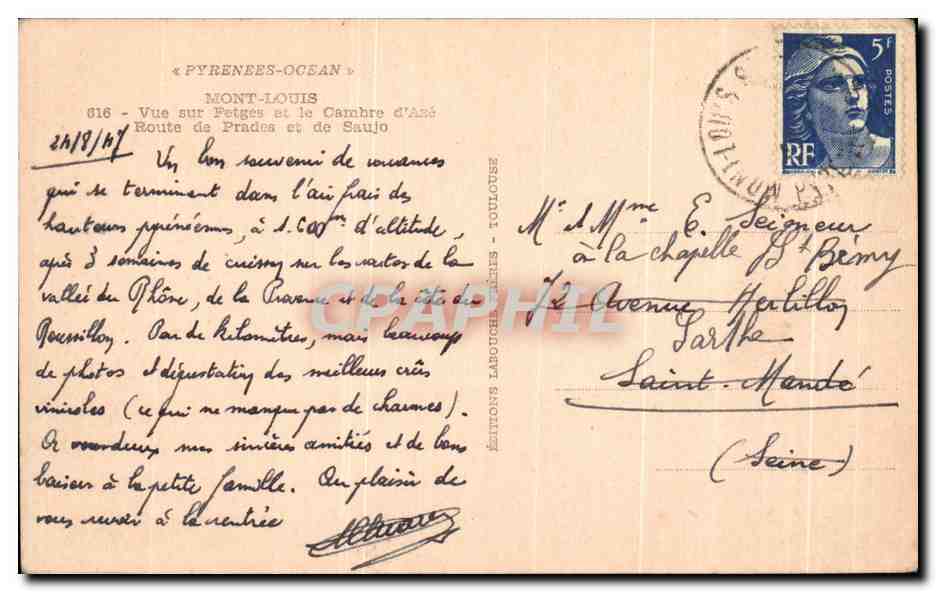 « PYRENEES-OCEAN »
MONT-LOUIS
616 - Vue sur Fetges et le Cambre d'Azé
Route de Prades et de Saujo
24/8/47
Un bon souvenir de vacances
qui se terminent dans l'air frais des
hauteurs pyrénéennes, à 1.600m d'altitude,
après 3 semaines de sur les routes de la
vallée du Rhône, de la Provence et de la côte du
Roussillon. Pas de kilomètres, mais beaucoup
de photos et dégustation des meilleurs crûs
vinicoles (ce qui ne manque pas de charmes).
A mes sincères amitiés et de bons
baisers à la petite famille. Au plaisir de
vous revoir à la rentrée
ÉDITIONS LABOUCHE FRÈRES - TOULOUSE
5F
POSTES
RF
MONT-LOUIS
Mr et Mme E. Seigneur
à la chapelle St Rémy
72 Avenue Herbillon
Sarthe
Saint-Mandé
(Seine)
CPAPHIL